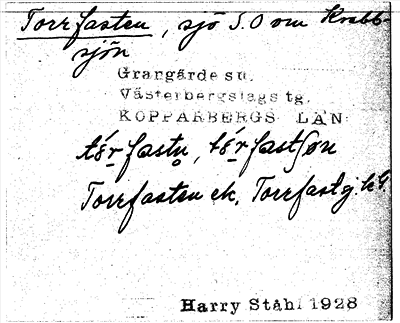 Torrfasten, sjö S.O om Krabb-
sjön
Grangärde sn.
Västerbergslags tg.
KOPPARBERGS LÄN
tɛ́r fastn̥, tɛ́r fastʃøn
Torrfasten ek, Torrfastgj. kG
Harry Ståhl 1928